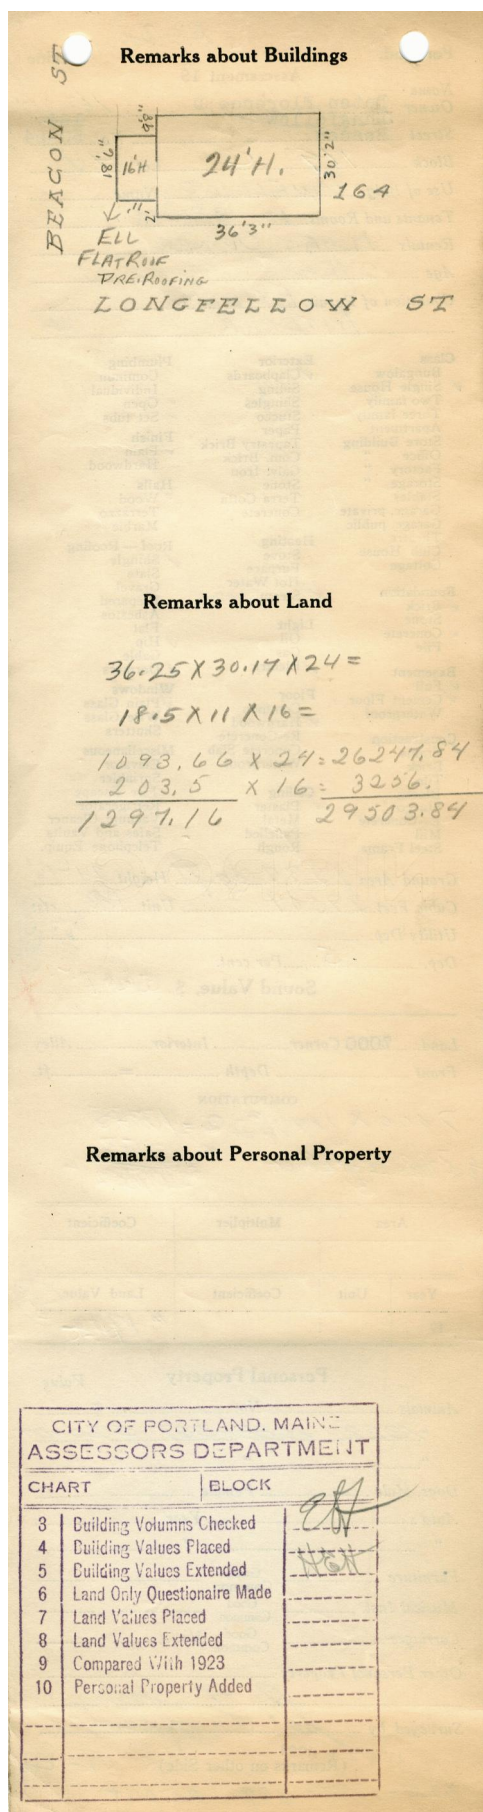 Remarks about Buildings
BEACON ST
9'8"
18'6"
16'H
24'H.
30'2"
164
2'
36'3"
ELL
FLAT ROOF
PRE. ROOFING
LONGFELLOW ST
Remarks about Land
36.25 X 30.17 X 24 =
18.5 X 11 X 16 =
1093.66 X 24 = 26247.84
203.5 X 16 = 3256.
1297.16 29503.84
Remarks about Personal Property
CITY OF PORTLAND, MAINE
ASSESSORS DEPARTMENT
CHART BLOCK
3 Building Volumns Checked
4 Building Values Placed
5 Building Values Extended
6 Land Only Questionaire Made
7 Land Values Placed
8 Land Values Extended
9 Compared With 1923
10 Personal Property Added